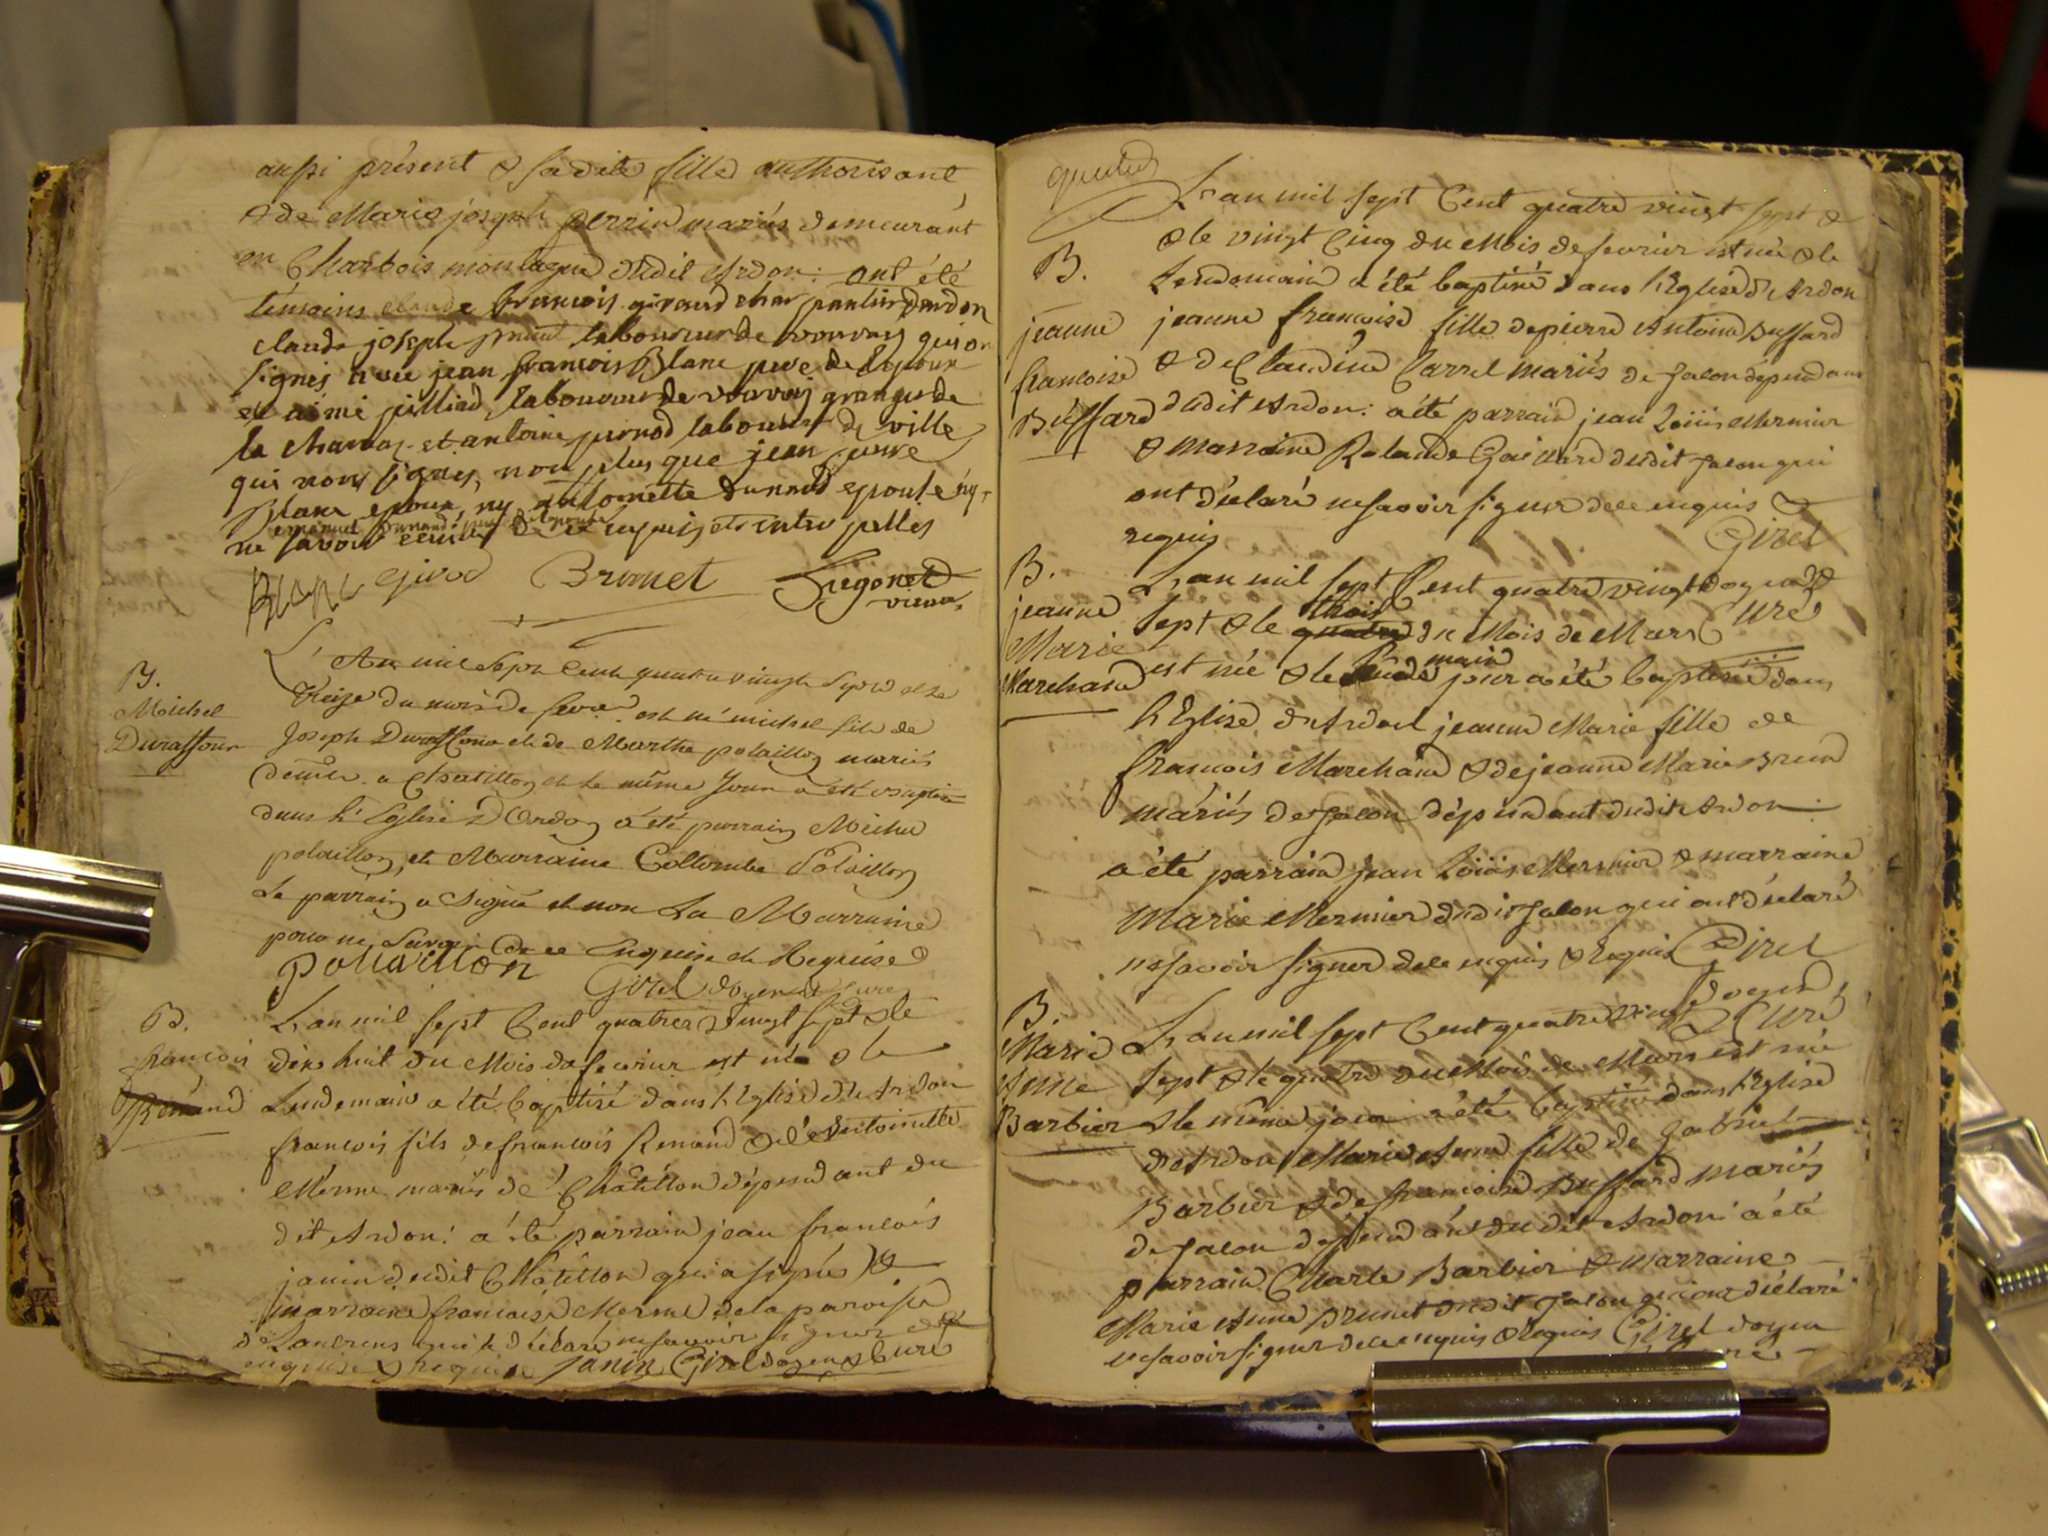 aussi présent & sa dite fille authorisant
& de Marie joseph perrin mariés demeurant
en Charbois montagne dudit Ardon: ont été
témoins claude françois giroud char pantier dardon
claude joseph laboureur de vouvray qui on
signés avec jean françois Blanc pere de lepoux
et aimé pilliod, laboureur de vouvray granger de
la et antoine pernod laboureur de ville
qui nont signés, non plus que jean pierre
Blanc epoux, ny anthoinette durand epouse ny
emanuel durand pere de lepouse
ne savoir ecrire de ce requis et interpellés
Blanc girod Brunet Liegonet
vicaire
L'An mil Sept Cent quatre vingt Sept et le
treize du mois de fevrier est né michel fils de
Joseph Duraffour et de Marthe polaillon mariés
demts a Chatillon et le même Jour a été baptisé
dans l'Eglise D'Ardon a été parrain Michel
polaillon, et Marraine Collombe Polaillon
Le parrain a Signé et non La Marraine
pour ne Savoir de ce Enquise et Requise
pollaillon Girel doyen & Curé
B.
Michel
Duraffour
L'an mil sept Cent quatre vingt sept & le
dix huit du Mois de fevrier est né & le
Lendemain a été baptisé dans l'Eglise de Ardon
françois fils de françois Renand & d'Antoinette
Merme mariés de Châtillon dépendant du
dit Ardon: a été parrain jean françois
janin dudit Châtillon qui a signés &
marraine françoise Merme de la paroisse
de qui a déclaré ne savoir signer de ce
enquise & requise Janin Girel doyen & Curé
B.
françois
Renand
L'an mil sept Cent quatre vingt sept &
& le vingt Cinq du Mois de fevrier est née & le
Lendemain a été baptisée dans l'Eglise d'Ardon
jeanne françoise fille de pierre Antoine Buffard
& de Claudine Carrel mariés de Jalon dépendant
dudit Ardon: a été parrain jean Loüis Mermier
& marraine Rolande Gaillard dudit Jalon qui
ont déclaré ne savoir signer de ce enquis &
requis Girel
doyen &
Curé
B.
jeanne
françoise
Buffard
L'an mil sept Cent quatre vingt
Sept & le quatre trois du Mois de Mars
est née & le Lendemain jour a été baptisée dans
l'Eglise d'Ardon jeanne Marie fille de
françois Marchand & de jeanne Marie Brun
mariés de Jalon dépendant dudit Ardon:
a été parrain jean Loüis Mermier & marraine
Marie Mermier dudit Jalon qui ont déclaré
ne savoir signer de ce enquis & requis Girel
doyen
& Curé
B.
jeanne
Marie
Marchand
L'an mil sept Cent quatre vingt
sept & le quatre du Mois de Mars est née
& le même jour a été baptisée dans l'Eglise
de Ardon Marie Anne fille de Gabriel
Barbier & de françoise Buffard mariés
de Jalon dépendant dudit Ardon: a été
parrain Charle Barbier & marraine
Marie Anne Brunet dudit Jalon qui ont déclaré
ne savoir signer de ce enquis & requis Girel doyen
& Curé
B.
Marie
Anne
Barbier